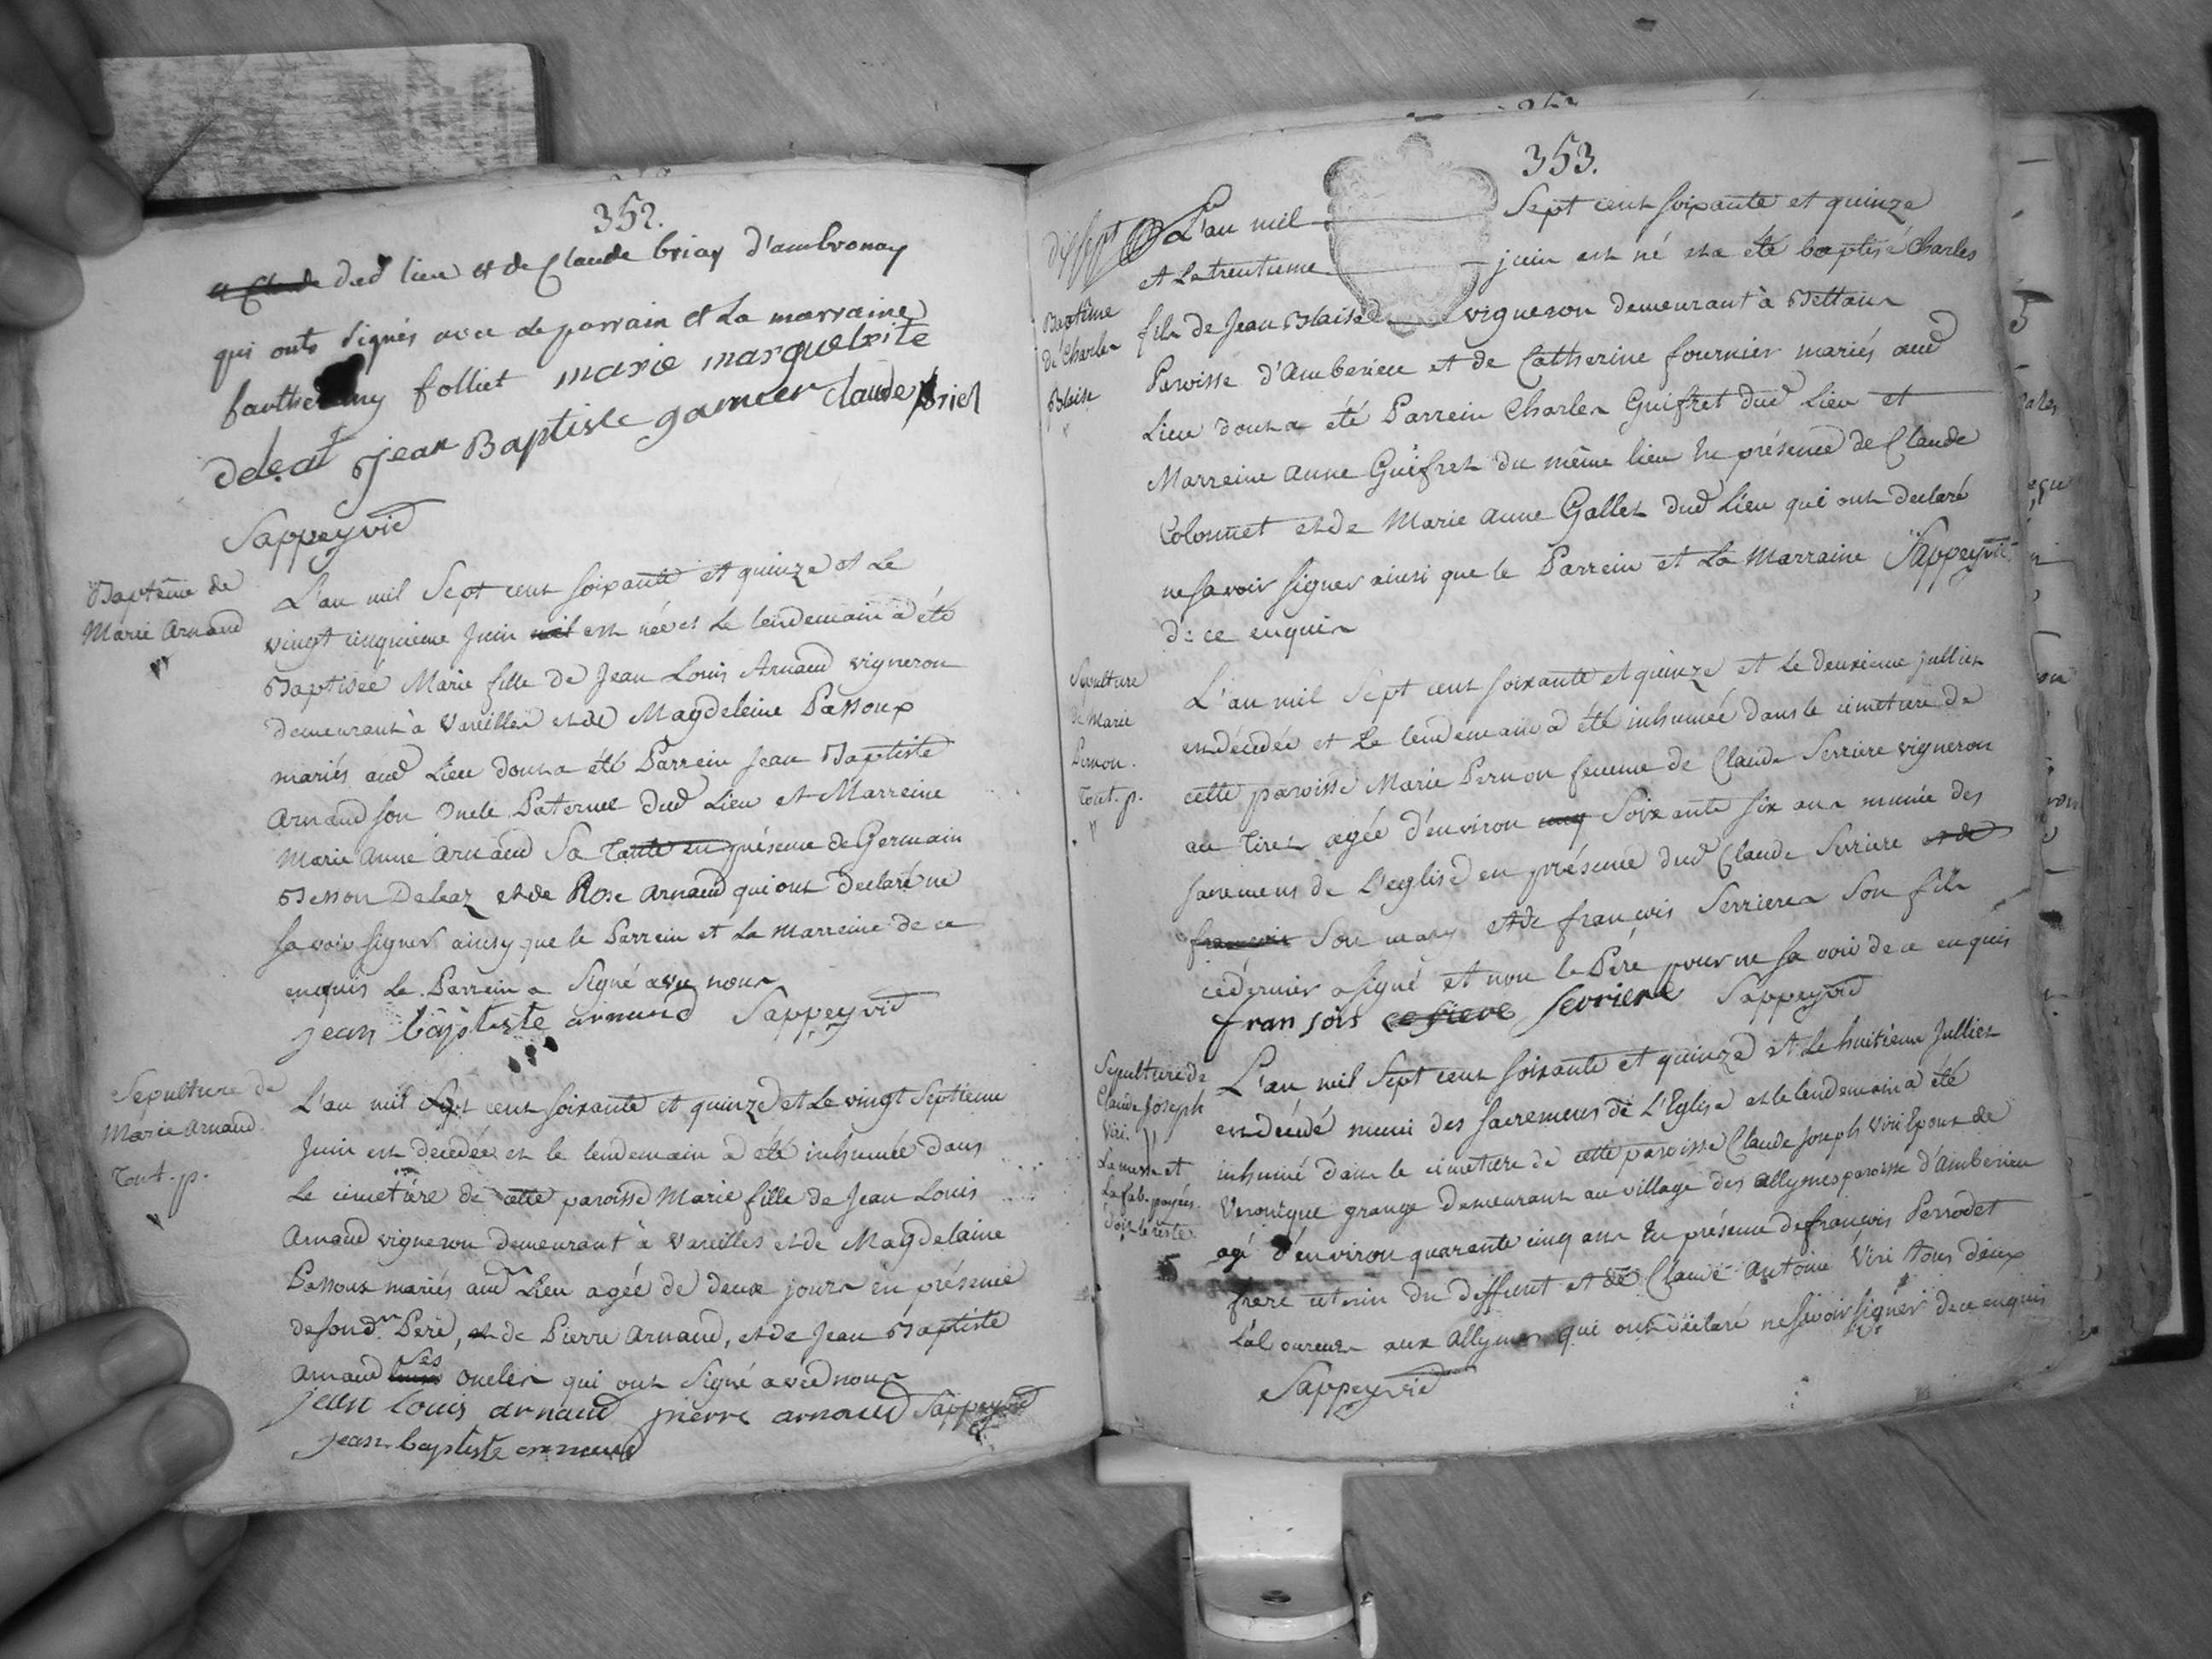 352.
et Claude dud lieu et de Claude briay d'ambronay
qui onts signés avec le parrain et la marraine
folliet marie marguelrite
deléat jean Baptiste garnier claude briel
Sappeyvié
Baptême de
Marie Arnaud
L'an mil Sept cent soixante et quinze et Le
vingt cinquieme Juin est née et Le lendemain a été
Baptisée Marie fille de Jean Louis Arnaud vigneron
demeurant à Vareilles et de Magdeleine Passoux
mariés aud Lieu dont a été Parrein Jean Baptiste
Arnaud son Oncle Paternel dud Lieu et Marreine
Marie Anne Arnaud Sa Tante en présence de Germain
Besson et de Rose Arnaud qui ont declaré ne
savoir signer ainsy que le Parrein et La marreine de ce
enquis Le Parrein a Signé avec nous
jean baptiste arnaud Sappeyvié
Sepulture de
Marie Arnaud
Tout. p.
L'an mil Sept cent soixante et quinze et Le vingt Septieme
Juin est decedée et le lendemain a été inhumée dans
Le cimetière de cette paroisse Marie fille de Jean Louis
Arnaud vigneron demeurant à Vareilles et de Magdelaine
Passoux mariés aud Lieu agée de deux jours en présence
de sond. Pere, et de Pierre Arnaud, et de Jean Baptiste
Arnaud ses oncles qui ont Signé avec nous
jean louis arnaud pierre arnaud Sappeyvié
jean baptiste arnaud
353.
dix sept L'an mil Sept cent soixante et quinze
et Le trentieme juin est né et a été baptisé Charles
Baptême
de Charles
Blaise
fils de Jean Blaise vigneron demeurant à Bettans
Paroisse d'Amberieu et de Catherine fournier mariés aud
Lieu dont a été Parrein Charles Guifret dud Lieu et
Marreine Anne Guifret du même lieu En présence de Claude
Colonnet et de Marie Anne Gallet dud Lieu qui ont declaré
ne savoir signer ainsi que le Parrein et La Marraine Sappeyvié
de ce enquis
Sepulture
de Marie
Pernon.
Tout. p.
L'an mil Sept cent soixante et quinze et le deuxieme Julliet
est décédée et Le lendemain a été inhumée dans le cimetiere de
cette paroisse Marie Pernon femme de Claude Serriere vigneron
au Tiret agée d'environ cinq Soixante six ans munie des
sacremens de L'eglise en présence dud Claude Serriere et de
françois son mary et de françois Serrieres son fils
ce dernier a signé et non le Pere pour ne savoir de ce enquis
fransois serriere Sappeyvié
Sepulture de
Claude Joseph
Viri.
La messe et
la fab. payées.
doit le reste
L'an mil Sept cent soixante et quinze et Le huitieme Julliet
est décédé muni des sacremens de L'Eglise et le lendemain a été
inhumé dans le cimetiere de cette paroisse Claude Joseph Viri Epoux de
Veronique grange demeurant au village des allymes paroisse d'Amberieu
agé d'environ quarante cinq ans En présence de françois Perrodet
frere uterin du deffunt et de Claude Antoine Viri tous deux
Laboureurs aux allymes qui ont déclaré ne savoir signer de ce enquis
Sappeyvié